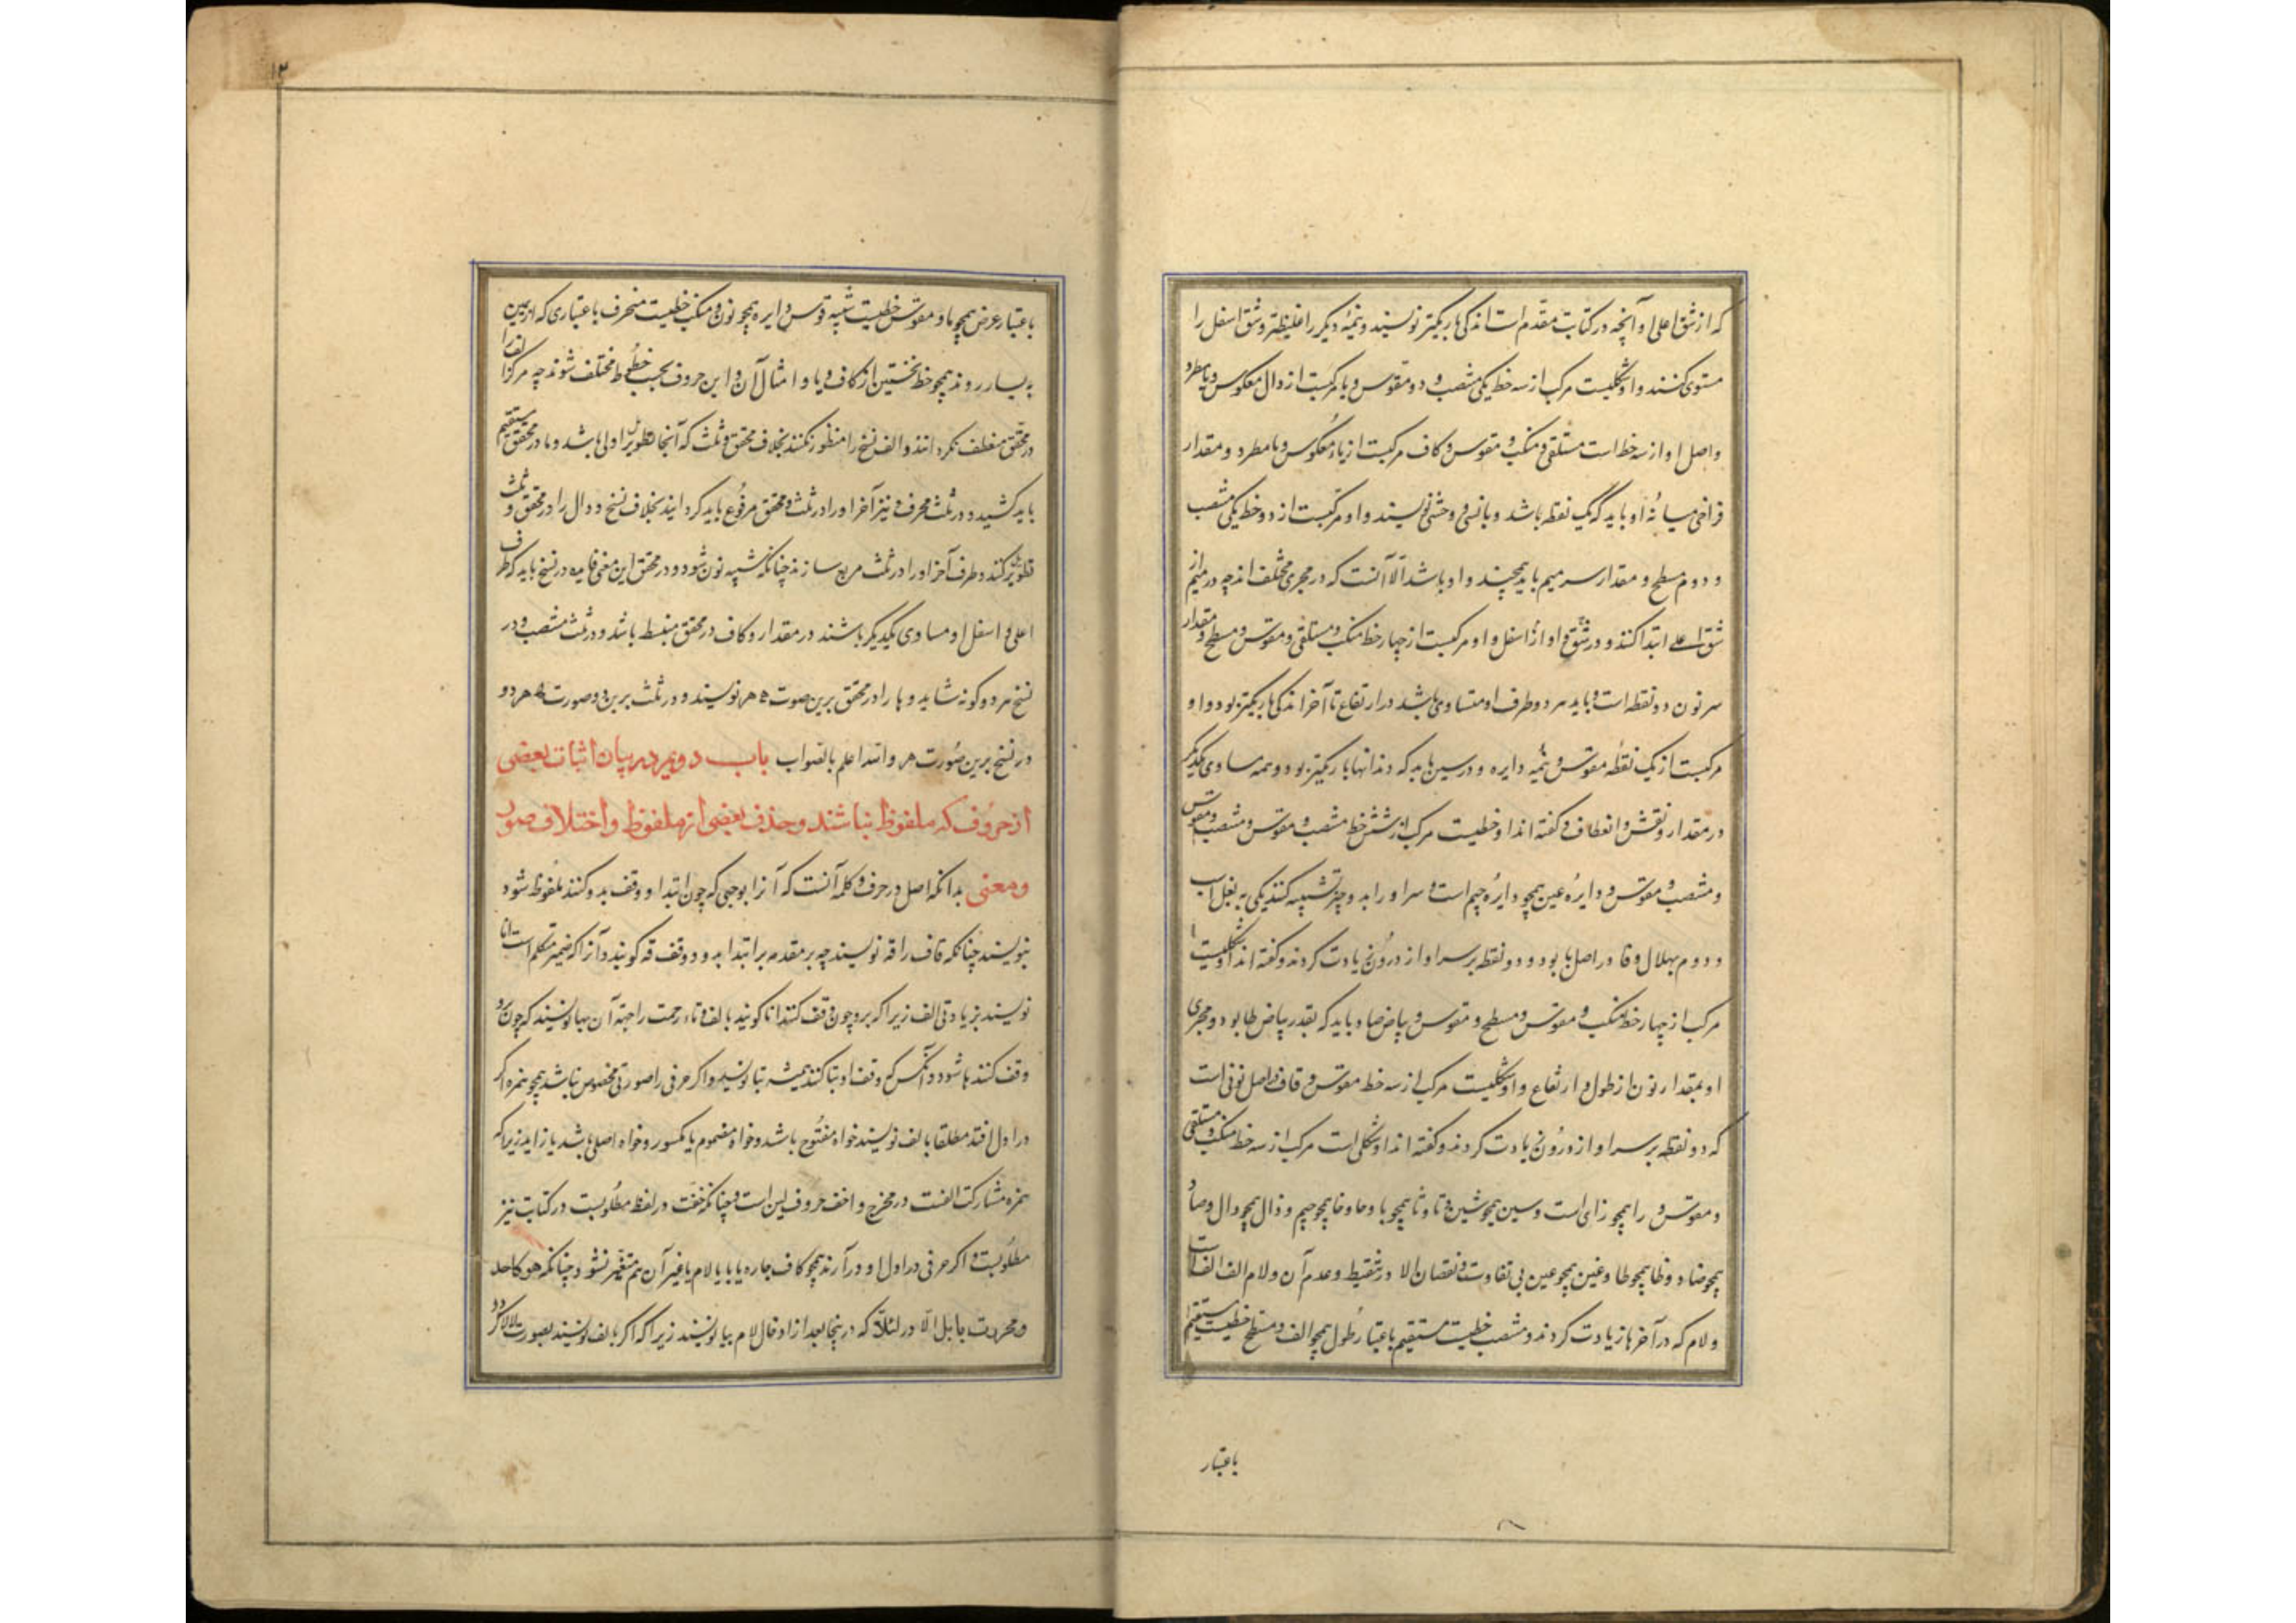 که از شق اعلی او آنچه در کتابت مقدم است اندکی باریکتر نویسند و نیمه دیگر را غلیظتر و شق اسفل را
مستوی کنند و او شکلیست مرکب از سه خط یکی منتصب و دو مقوس و یا مرکبست از دال معکوس و با مطرد
واصل او از سه خط است مستلقی و منکب و مقوس و کاف مرکبست از یاء معکوس و با مطرد و مقدار
فراخی میانه او باید که یک نقطه باشد و بانسی و حشی نویسند و او مرکبست از دو خط یکی منتصب
و دوم مسطح و مقدار سر میم باید همچند واو باشد الا آنست که در مجری مختلف اند چه در میم از
شق اعلی ابتدا کنند و در واو از اسفل و او مرکبست از چهار خط منکب و مستلقی و مقوس و مسطح و مقدار
سر نون دو نقطه است و باید هر دو طرف او متساوی باشد در ارتفاع تا آخر اندکی باریکتر بود و او
مرکبست از یک نقطه مقوس و نیمه دایره و در سین باید که دندانها باریکتر بود و همه مساوی یکدیگر
در مقدار و نقش و انعطاف و گفته اند او خطیست مرکب از شش خط منتصب و مقوس و منتصب و مقوس
و منتصب و مقوس و دایره عین همچو دایره جیم است و سر او را بدو چیز تشبیه کنند یکی به نعل اسب
و دوم بهلال و فا در اصل با بود و دو نقطه بر سر او از درون زیادت کردند و گفته اند او شکلیست
مرکب از چهار خط منکب و مقوس و مسطح و مقوس و بیاض صاد باید که بقدر بیاض طا بود و مجری
او بمقدار نون از طول و ارتفاع و او شکلیست مرکب از سه خط مقوس و قاف در اصل نونی است
که دو نقطه بر سر او از درون زیادت کردند و گفته اند او شکلی است مرکب از سه خط منکب و مستلقی
و مقوس و را همچو زای است و سین همچو شین و تا و ثا همچو با و حا و خا همچو جیم و ذال همچو دال و صاد
همچو ضاد و ظا همچو طا و غین همچو عین بی تفاوت و نقصان الا در تنقیط و عدم آن و لام الف الف است
و لام که در آخر با زیادت کردند و منتصب خطیست مستقیم باعتبار طول همچو الف و مسطح خطیست مستقیم
باعتبار
۱۲
باعتبار عرض همچو با و مقوس خطیست شبیه قوس دایره همچو نون و منکب خطیست منحرف باعتباری که از یمین
به یسار روند همچو خط نخستین از کاف و یا و امثال آن و این حروف بحسب خطوط مختلف شوند چه مرکز الف را
در محقق منعطف نکرده اند و الف نسخ را منظور نکنند بخلاف محقق و ثلث که آنجا تطویل اولی باشد و با در محقق مستقیم
باید کشید و در ثلث محرف و نیز آخر او را در ثلث و محقق مرفوع باید گردانید بخلاف نسخ و دال را در محقق و ثلث
کنند و طرف آخر او را در ثلث مربع سازند چنانکه شبیه نون شود و در محقق این معنی و در نسخ باید که طرف
اعلی و اسفل او مساوی یکدیگر باشند در مقدار و کاف در محقق منبسط باشد و در ثلث منتصب و در
نسخ هر دو گونه شاید و ها را در محقق برین صوت ه هر نویسند و در ثلث برین دو صورت ه هر دو
در نسخ برین صورت هر والله اعلم بالصواب باب دویم در بیان اثبات بعضی
از حروف که ملفوظ نباشند و حذف بعضی از ملفوظ و اختلاف صور
و معنی بدانکه اصل در حرف و کلمه آنست که آنرا بوجهی که چون ابتدا و وقف بدو کنند ملفوظ شود
بنویسند چنانکه قاف را قه نویسند چه بر مقدمه بر ابتدا بدو و وقف قه گویند و آنرا که ضمیر متکلم است انا
نویسند بزیادتی الف زیرا که برو چون وقف کنند انا گویند بالف و تاء رحمت را جهة آن بها نویسند که چون برو
وقف کنند ها شود و آنکس که وقف او بتا کند همیشه بتا نویسد و اگر حرفی را صورتی مخصوص نباشد همچو همزه اگر
در اول افتد مطلقا بالف نویسند خواه مفتوح باشد و خواه مضموم یا مکسور و خواه اصلی باشد یا زاید زیرا که
همزه مشارکت الفست در مخرج و اخف حروف لین است و چنانکه خفت در لفظ مطلوبست در کتابت نیز
مطلوبست و اگر حرفی در اول او درآرند همچو کاف جاره یا با یا لام یا غیر آن هم متغیر نشود چنانکه هو کاحد
و مررت بابل الا در لئلا که در ینجا بعد از ادخال لام بیا نویسند زیرا که اگر بالف نویسند بصورت لالا گردد